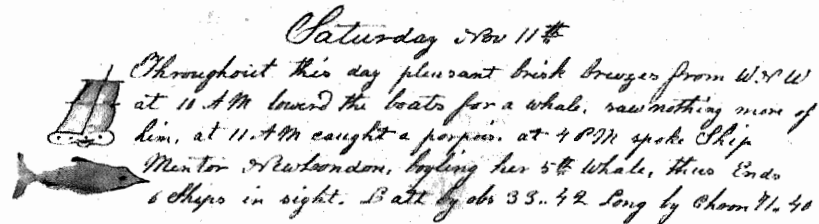 Saturday Nov 11th
Throughout this day pleasant brisk breezes from W.N.W
at 10 AM lowerd the boats for a whale, saw nothing more of
him, at 11 AM caught a porpois. at 4 PM spoke Ship
Mentor NewLondon, boyling her 5th Whale, thus Ends
6 Ships in sight. Latt by obs 33..42 Long by Chron 71..40